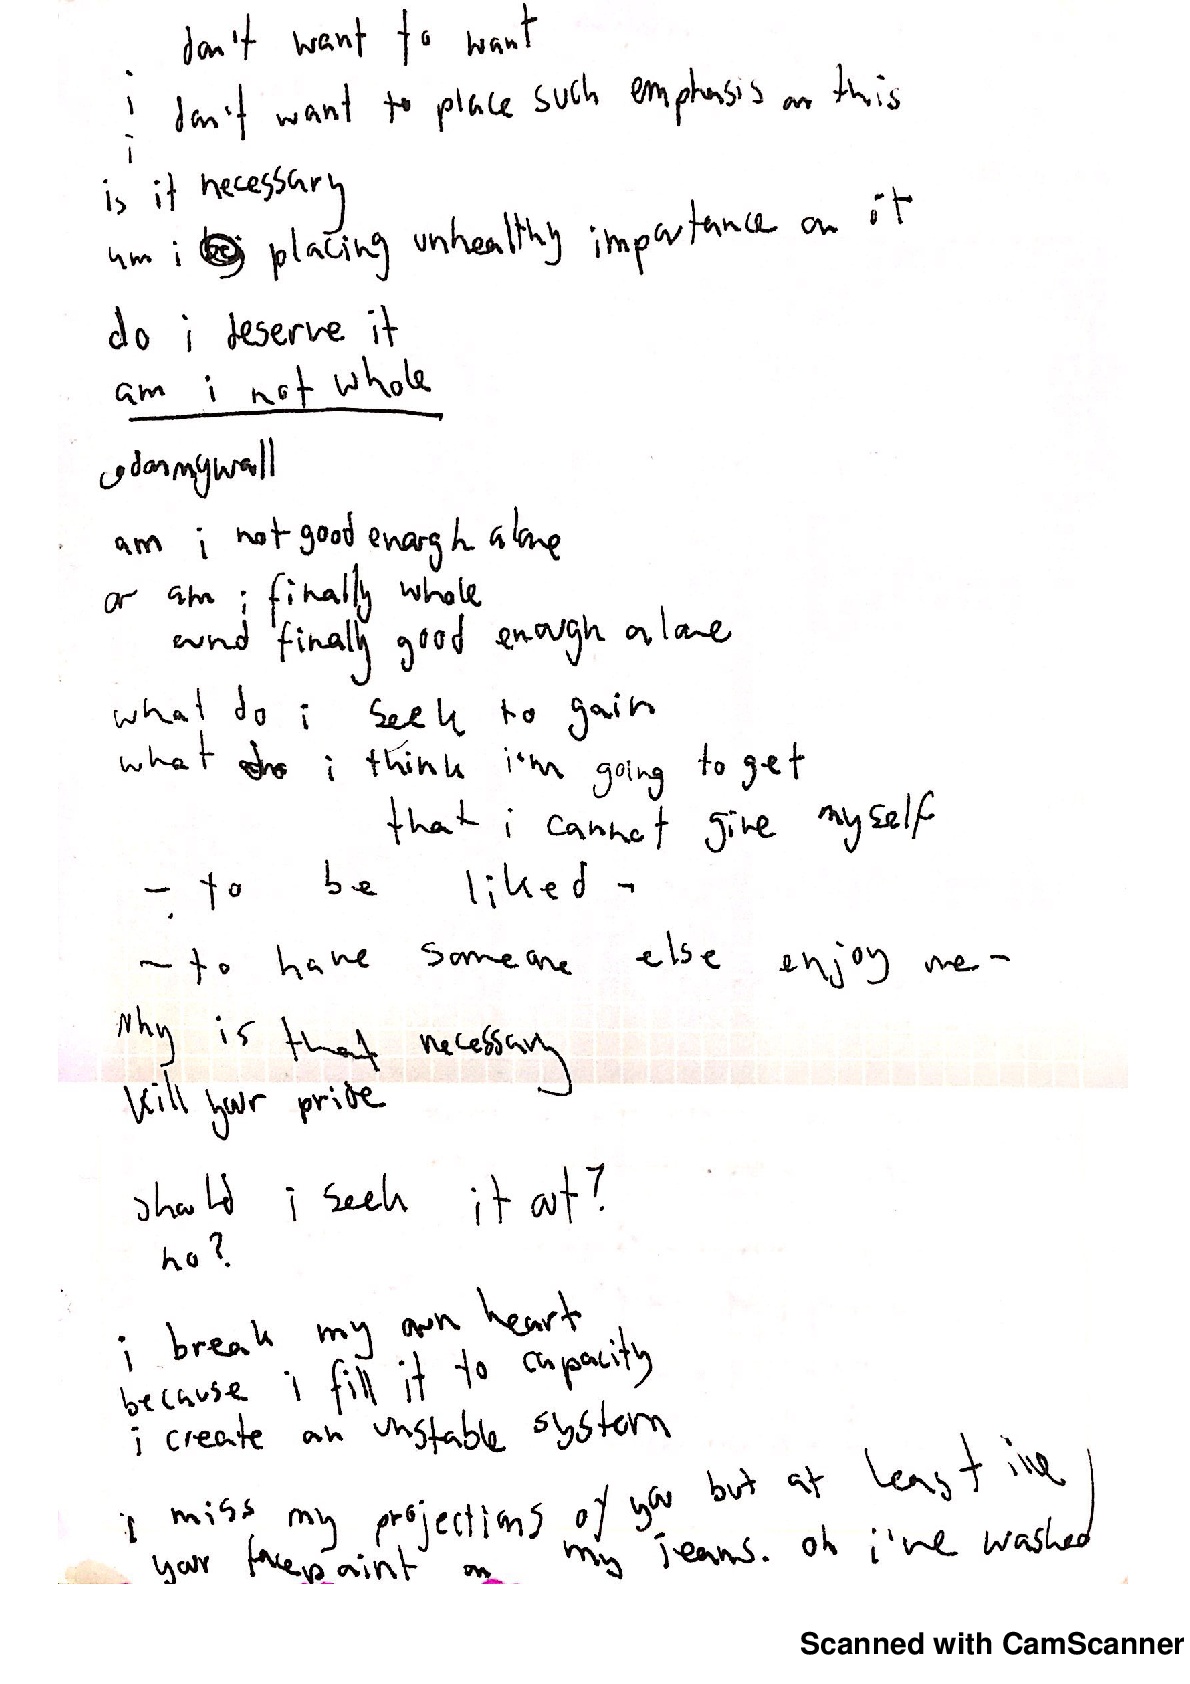 i don't want to want
i
i don't want to place such emphasis on this
is it necessary
am i placing unhealthy importance on it
do i deserve it
am i not whole
am i not good enough alone
or am i finally whole
and finally good enough alone
what do i seek to gain
what do i think i'm going to get
that i cannot give myself
- to be liked -
- to have someone else enjoy me -
Why is that necessary
Kill your pride
should i seek it out?
no?
i break my own heart
because i fill it to capacity
i create an unstable system
i miss my projections of you but at least i've
your facepaint on my jeans. oh i've washed
Scanned with CamScanner